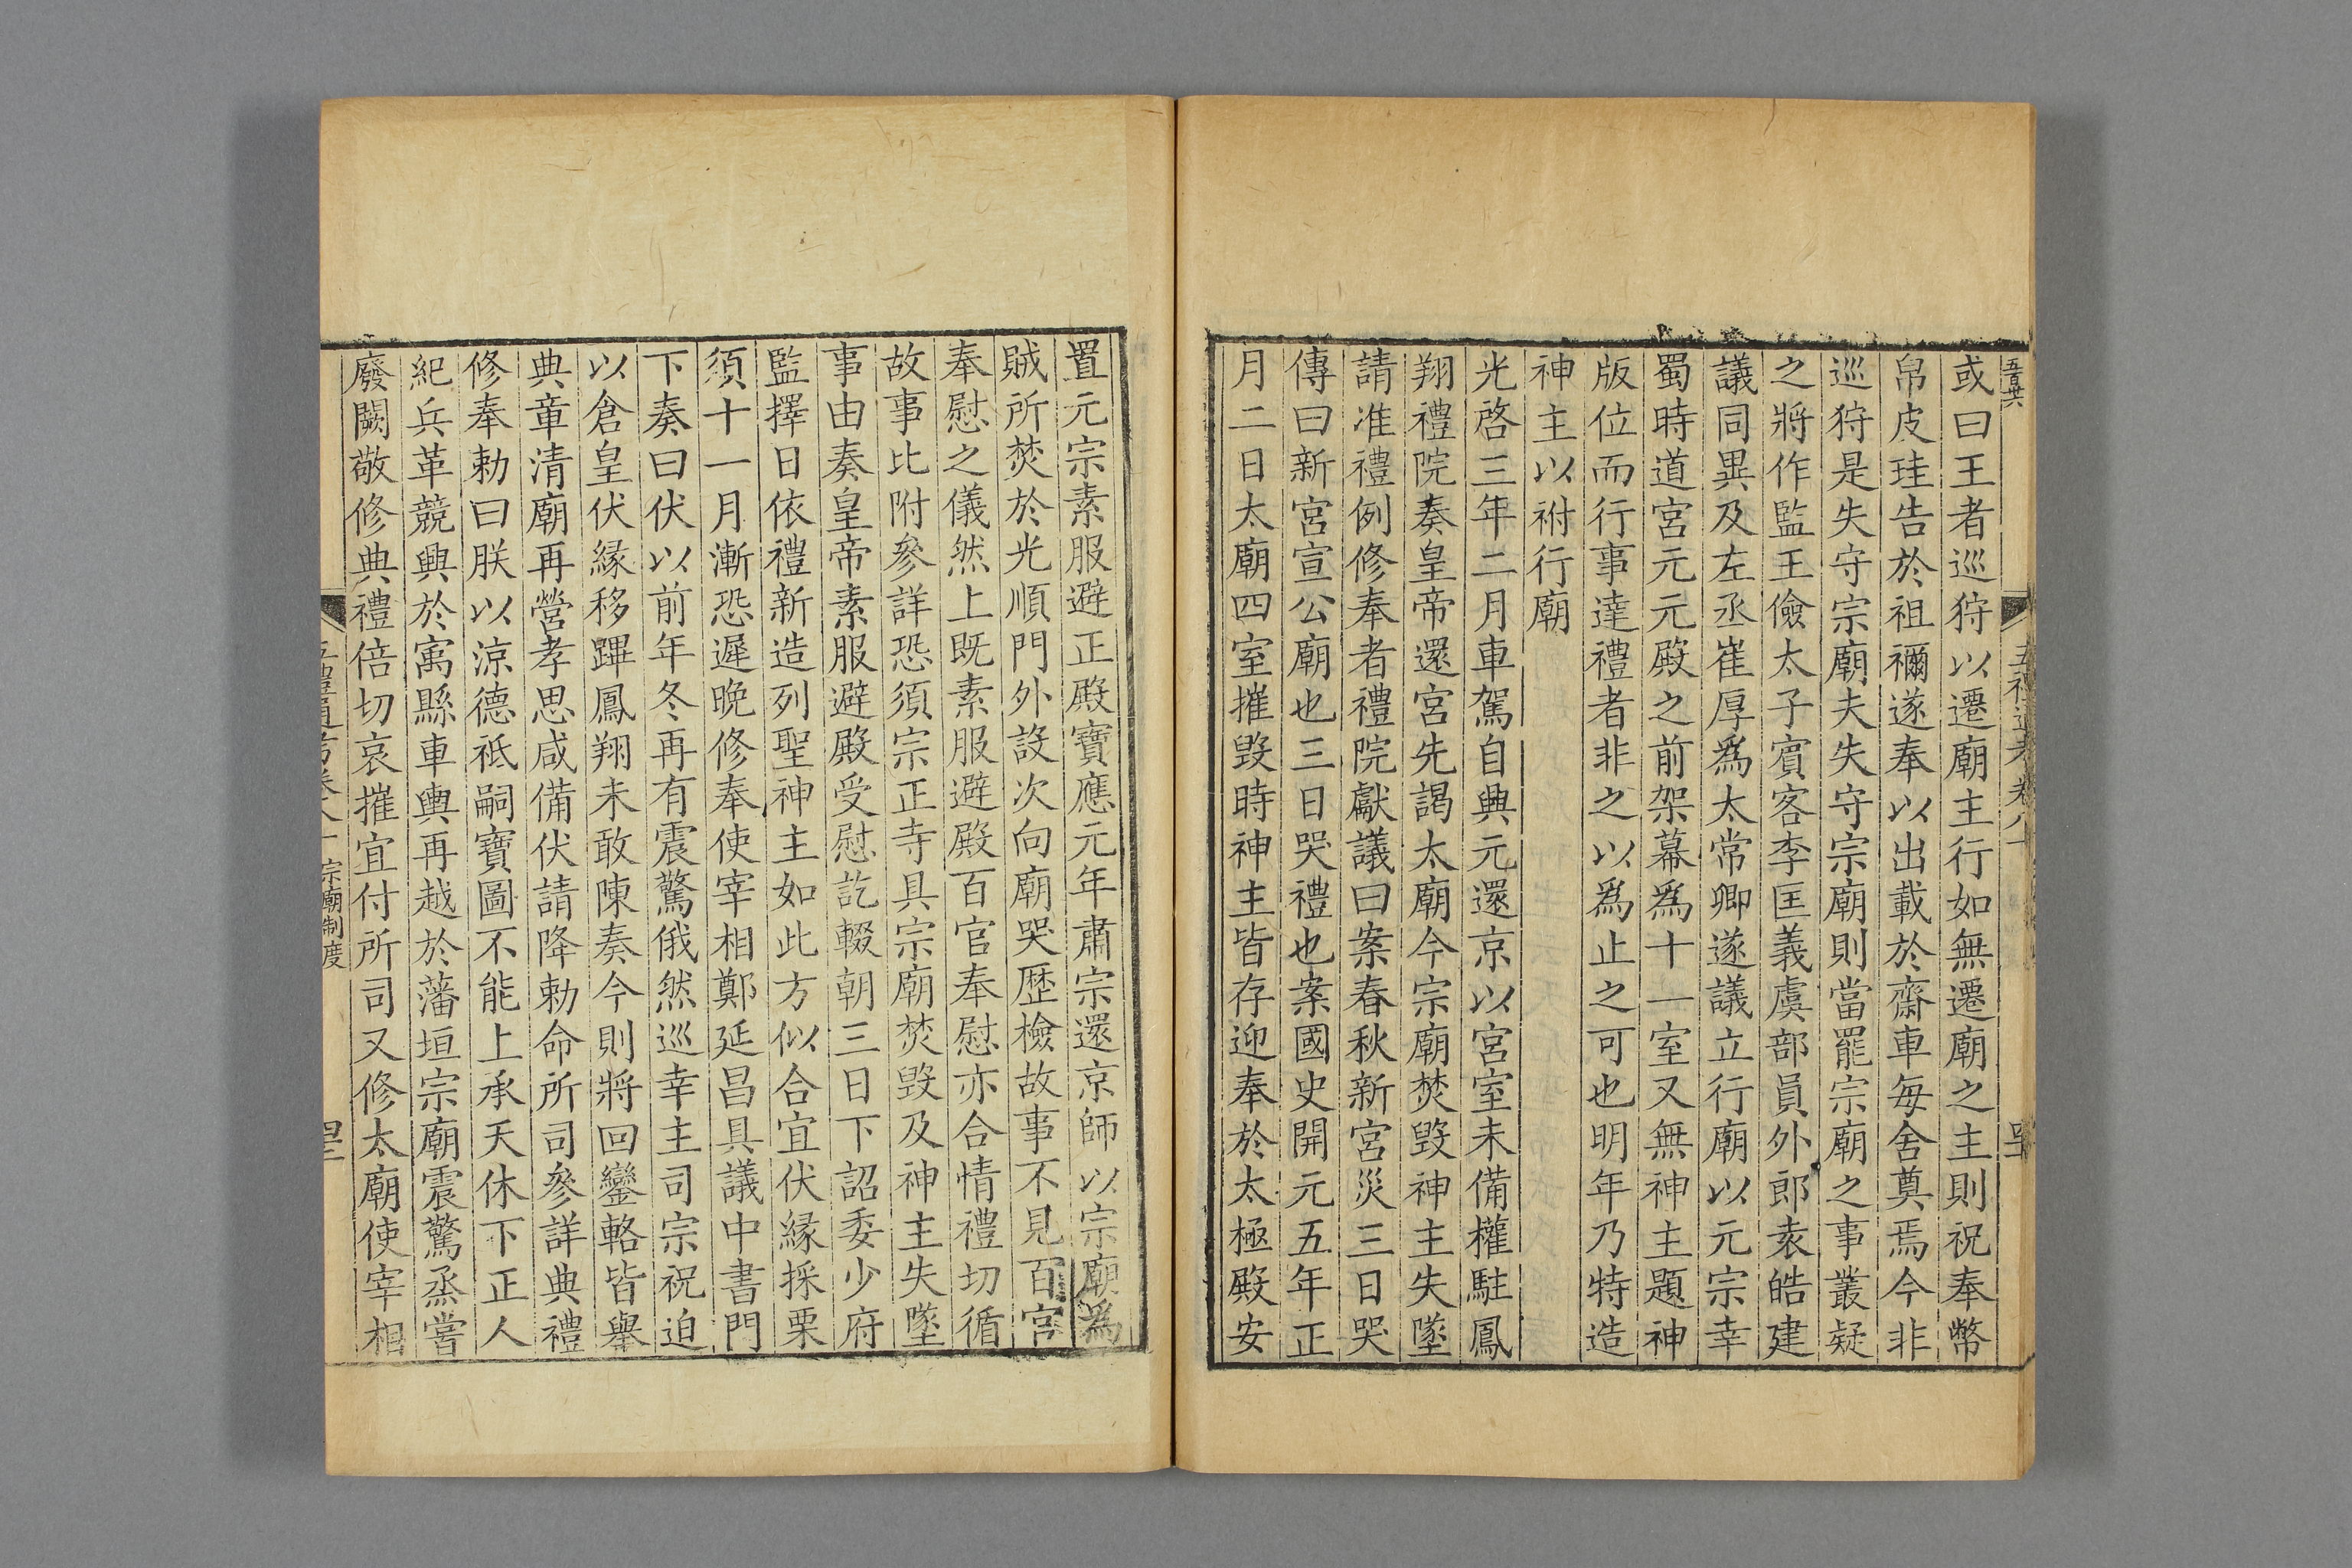 五禮通考卷八十
或曰王者巡狩以遷廟主行如無遷廟之主則祝奉幣
帛皮珪告於祖禰遂奉以出載於齋車每舍奠焉今非
巡狩是失守宗廟夫失守宗廟則當罷宗廟之事叢疑
之將作監王儉太子賓客李匡義虞部員外郎袁皓建
議同異及左丞崔厚爲太常卿遂議立行廟以元宗幸
蜀時道宮元元殿之前架幕爲十一室又無神主題神
版位而行事達禮者非之以爲止之可也明年乃特造
神主以祔行廟
光啓三年二月車駕自興元還京以宮室未備權駐鳳
翔禮院奏皇帝還宮先謁太廟今宗廟焚毀神主失墜
請准禮例修奉者禮院獻議曰案春秋新宮災三日哭
傳曰新宮宣公廟也三日哭禮也案國史開元五年正
月二日太廟四室摧毀時神主皆存迎奉於太極殿安
置元宗素服避正殿寶應元年肅宗還京師以宗廟爲
賊所焚於光順門外設次向廟哭歷檢故事不見百官
奉慰之儀然上既素服避殿百官奉慰亦合情禮切循
故事比附參詳恐須宗正寺具宗廟焚毀及神主失墜
事由奏皇帝素服避殿受慰訖輟朝三日下詔委少府
監擇日依禮新造列聖神主如此方似合宜伏緣採栗
須十一月漸恐遲晚修奉使宰相鄭延昌具議中書門
下奏曰伏以前年冬再有震驚俄然巡幸主司宗祝迫
以倉皇伏緣移蹕鳳翔未敢陳奏今則將回鑾輅皆舉
典章清廟再營孝思咸備伏請降勅命所司參詳典禮
修奉勅曰朕以涼德祇嗣寶圖不能上承天休下正人
紀兵革競興於寓縣車輿再越於藩垣宗廟震驚烝嘗
廢闕敬修典禮倍切哀摧宜付所司又修太廟使宰相
五禮通考卷八十 宗廟制度